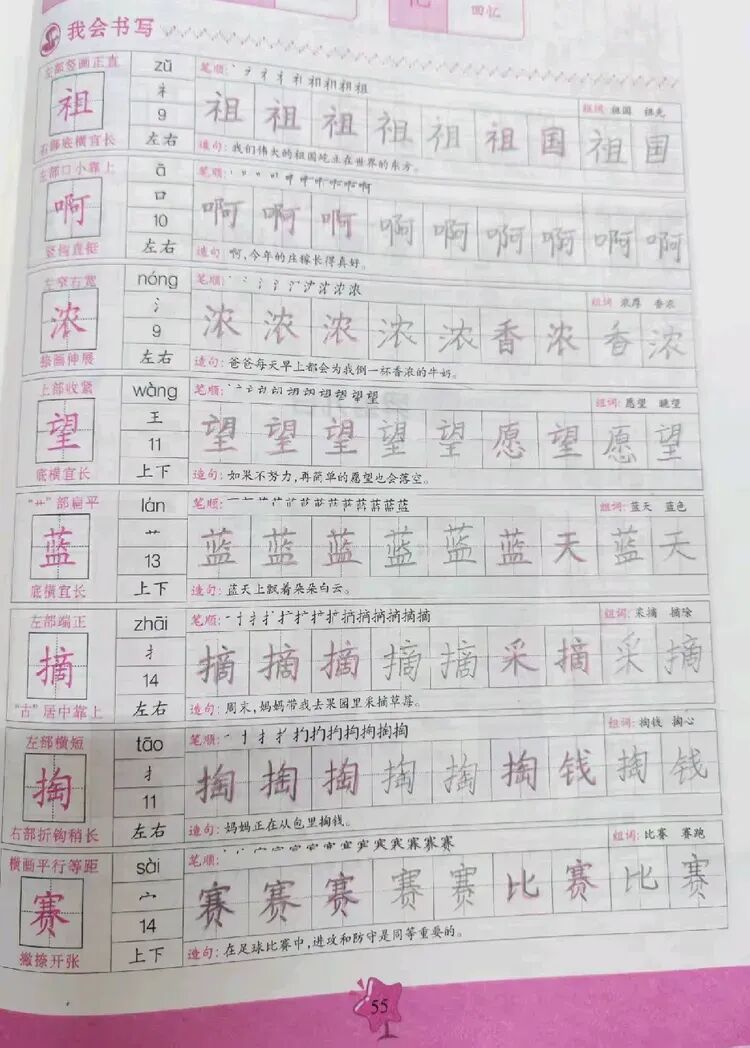 回忆
我会书写
左部竖画正直 zǔ 笔顺：
组词：祖国 祖先
祖 礻 祖 祖 祖 祖 祖 祖 国 祖 国
9
右部底横宜长 左右 造句：我们伟大的祖国屹立在世界的东方。
左部口小靠上 ā 笔顺：
啊 口 啊 啊 啊 啊 啊 啊 啊 啊 啊
10
竖钩直挺 左右 造句：啊，今年的庄稼长得真好。
左窄右宽 nóng 笔顺：
组词：浓厚 香浓
浓 氵 浓 浓 浓 浓 浓 香 浓 香 浓
9
捺画伸展 左右 造句：爸爸每天早上都会为我倒一杯香浓的牛奶。
上部收紧 wàng 笔顺：
组词：愿望 眺望
望 王 望 望 望 望 望 愿 望 愿 望
11
底横宜长 上下 造句：如果不努力，再简单的愿望也会落空。
“艹”部扁平 lán 笔顺：
组词：蓝天 蓝色
蓝 艹 蓝 蓝 蓝 蓝 蓝 蓝 天 蓝 天
13
底横宜长 上下 造句：蓝天上飘着朵朵白云。
左部端正 zhāi 笔顺：
组词：采摘 摘除
摘 扌 摘 摘 摘 摘 摘 采 摘 采 摘
14
“古”居中靠上 左右 造句：周末，妈妈带我去果园里采摘草莓。
左部横短 tāo 笔顺：
组词：掏钱 掏心
掏 扌 掏 掏 掏 掏 掏 掏 钱 掏 钱
11
右部折钩稍长 左右 造句：妈妈正在从包里掏钱。
横画平行等距 sài 笔顺：
组词：比赛 赛跑
赛 宀 赛 赛 赛 赛 赛 比 赛 比 赛
14
撇捺开张 上下 造句：在足球比赛中，进攻和防守是同等重要的。
55